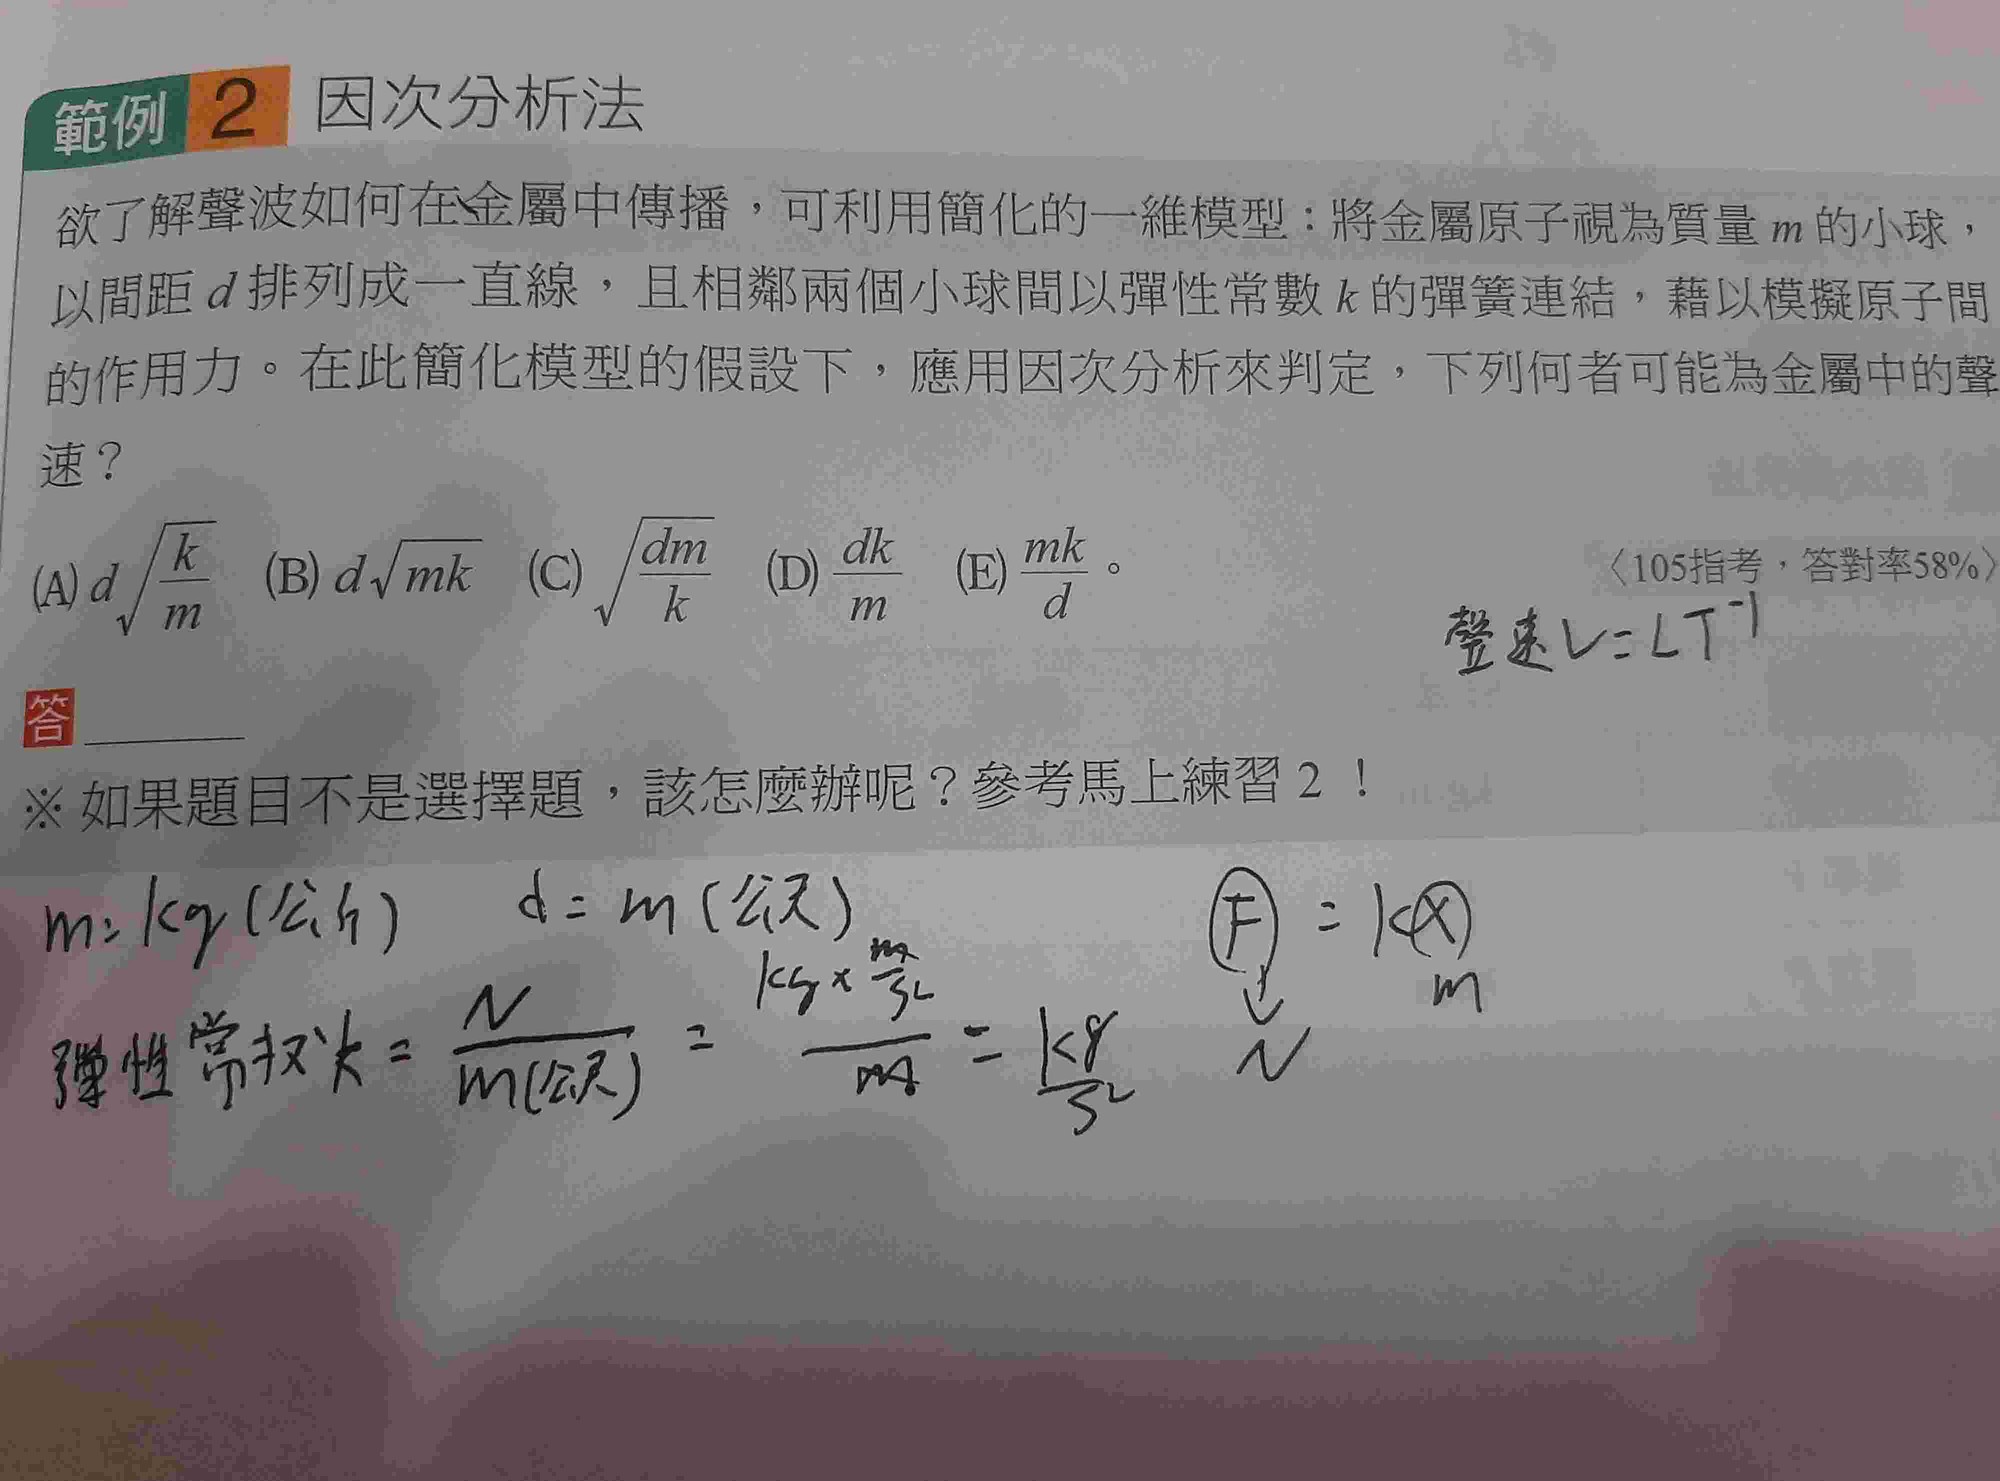 範例 2 因次分析法
欲了解聲波如何在金屬中傳播，可利用簡化的一維模型：將金屬原子視為質量 m 的小球，
以間距 d 排列成一直線，且相鄰兩個小球間以彈性常數 k 的彈簧連結，藉以模擬原子間
的作用力。在此簡化模型的假設下，應用因次分析來判定，下列何者可能為金屬中的聲
速？
(A) d√(k/m) (B) d√(mk) (C) √(dm/k) (D) dk/m (E) mk/d。
〈105指考，答對率58%〉
聲速 V = LT⁻¹
答
※如果題目不是選擇題，該怎麼辦呢？參考馬上練習 2！
m = kg (公斤) d = m (公尺) F = kx
N m
彈性常数 k = N/m(公尺) = kg × m/s²/m = kg/s²